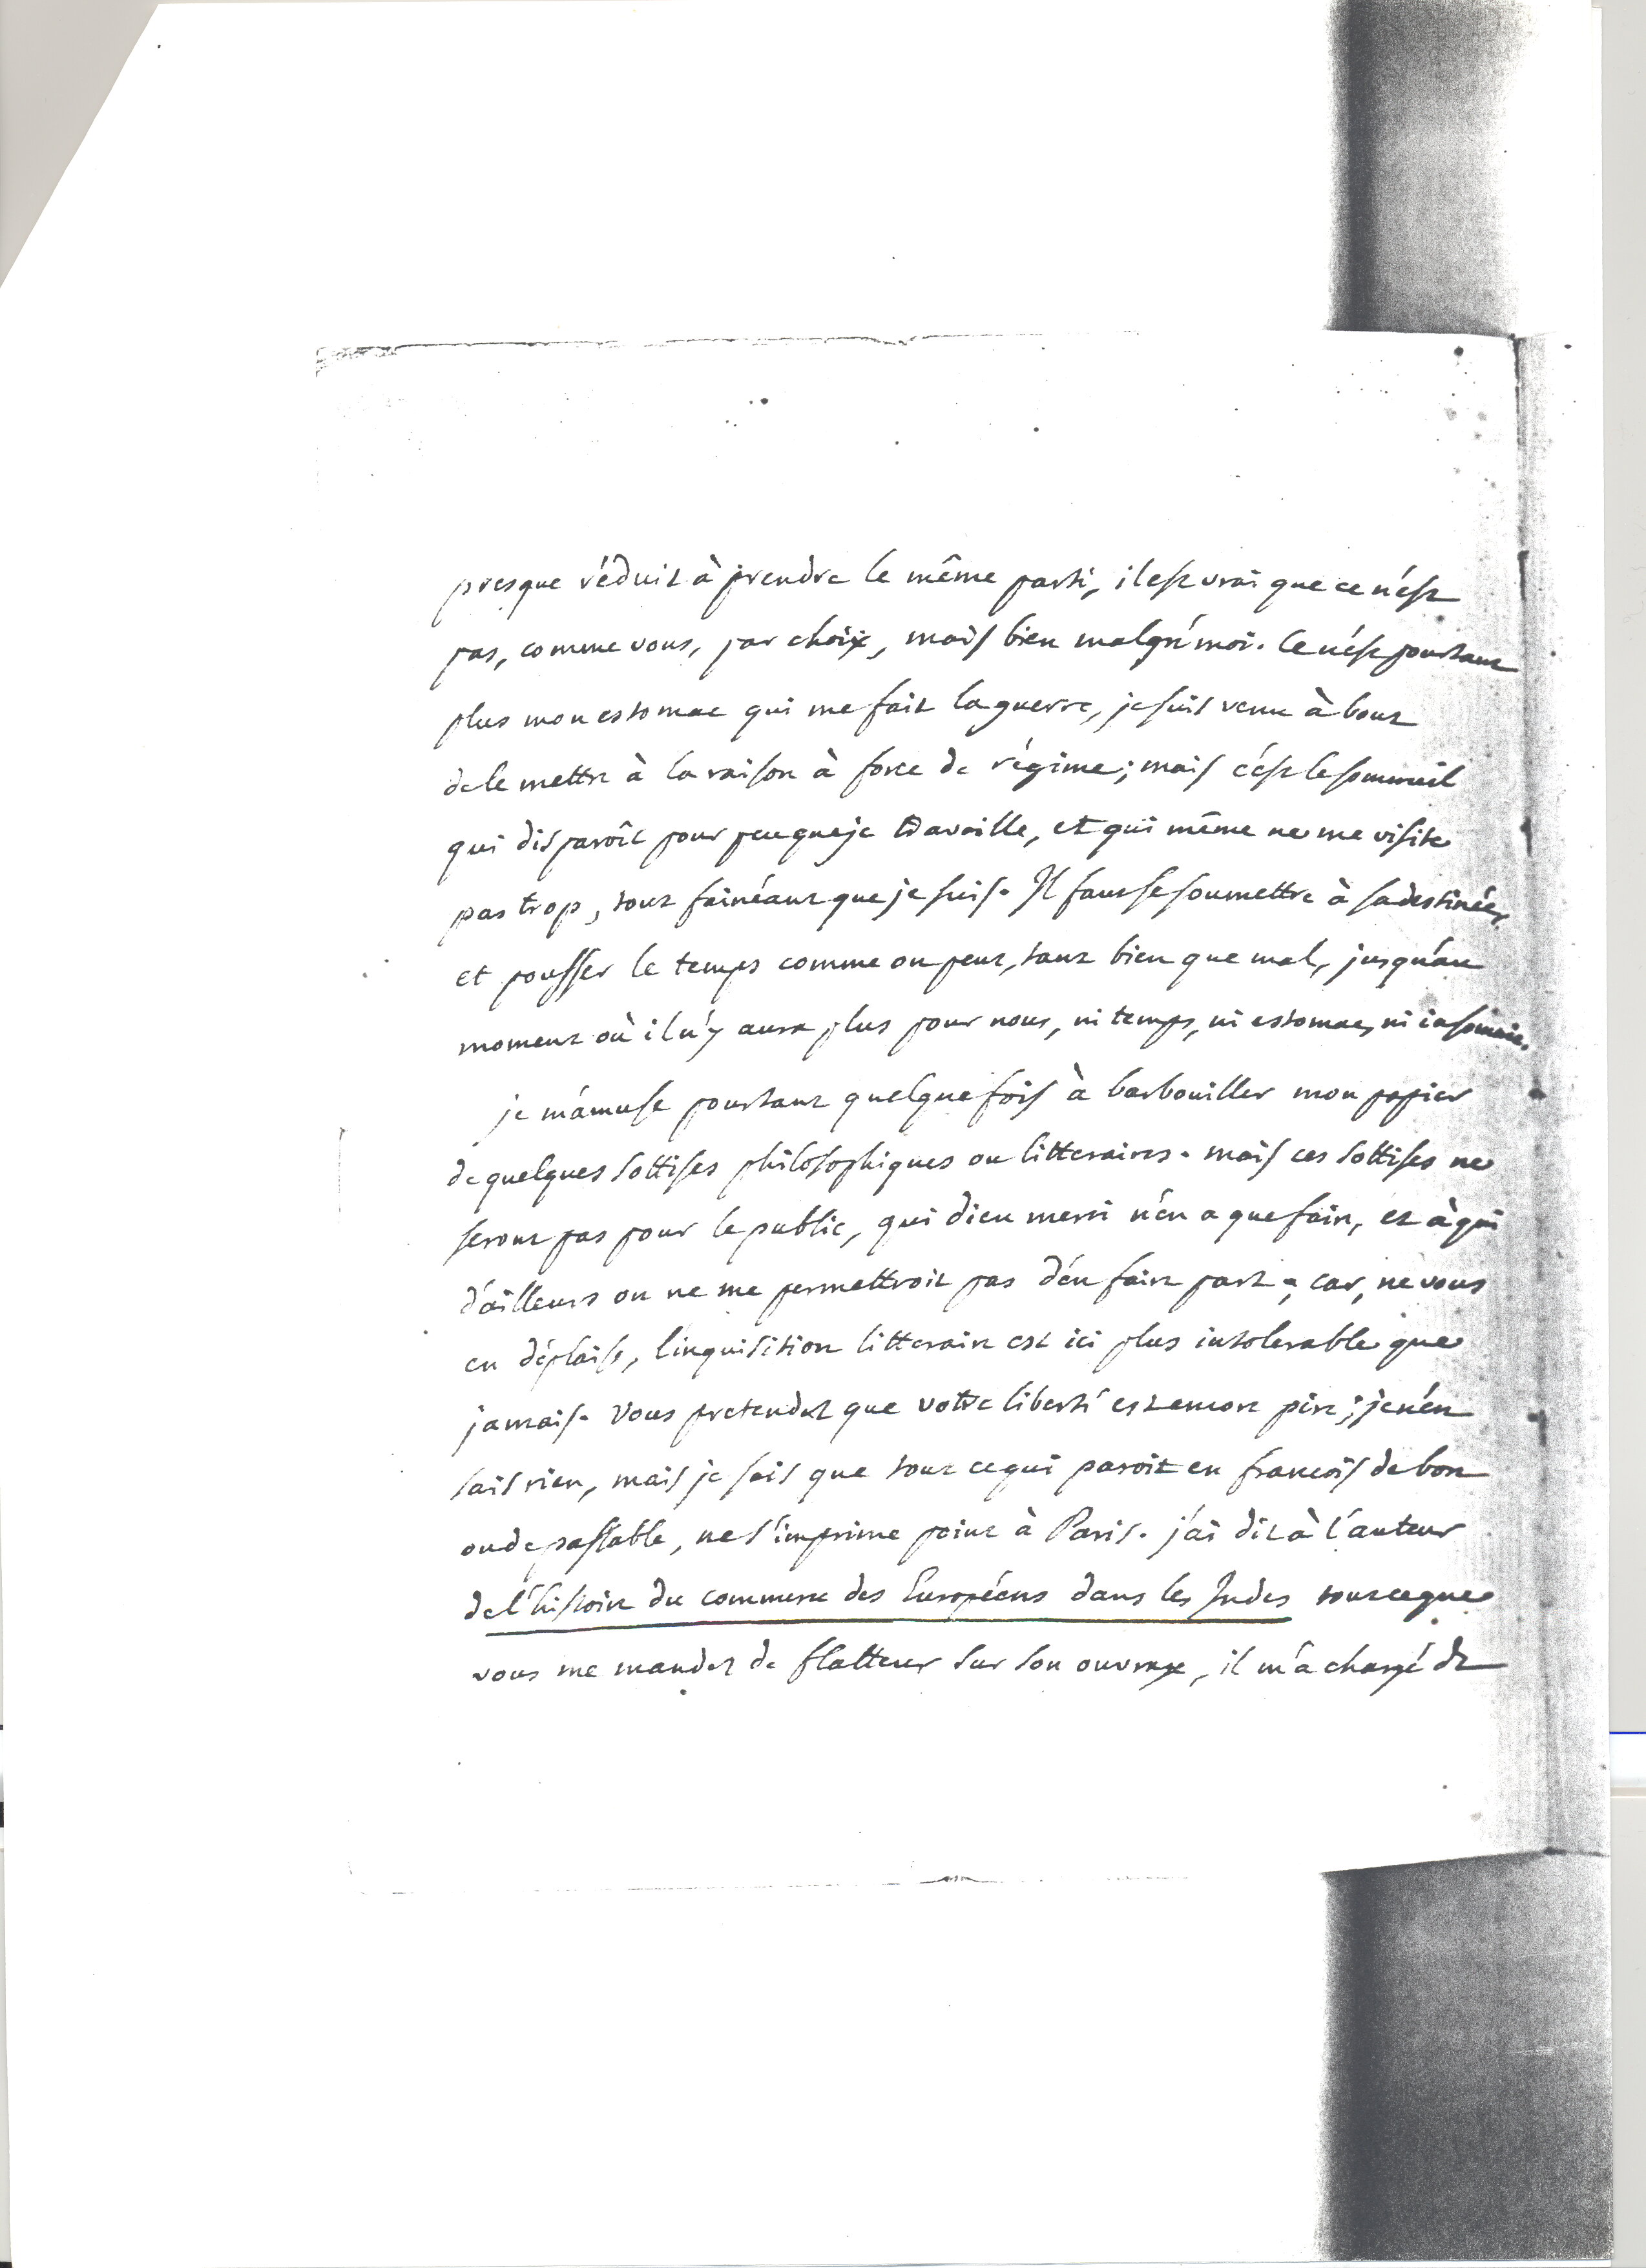 presque réduit à prendre le même parti, il est vrai que ce n'est
pas, comme vous, par choix, mais bien malgré moi. Ce n'est pourtant
plus mon estomac qui me fait la guerre, je suis venu à bout
de le mettre à la raison à force de régime; mais c'est le sommeil
qui disparoît pour peu que je travaille, et qui même ne me visite
pas trop, tout fainéant que je suis. Il faut se soumettre à sa destinée,
et pousser le temps comme on peut, tant bien que mal, jusqu'au
moment où il n'y aura plus pour nous, ni temps, ni estomac, ni insomnie.
je m'amuse pourtant quelquefois à barbouiller mon papier
de quelques sottises philosophiques ou litteraires. mais ces sottises ne
seront pas pour le public, qui dieu merci n'en a que faire, et à qui
d'ailleurs on ne me permettroit pas d'en faire part; car, ne vous
en déplaise, l'inquisition litteraire est ici plus intolerable que
jamais. Vous pretendez que votre liberté est encore pire; je n'en
sais rien, mais je sais que tout ce qui paroit en francois de bon
ou de passable, ne s'imprime point à Paris. j'ai dit à l'auteur
de l'histoire du commerce des Européens dans les Indes tout ce que
vous me mandez de flatteur sur son ouvrage, il m'a chargé de